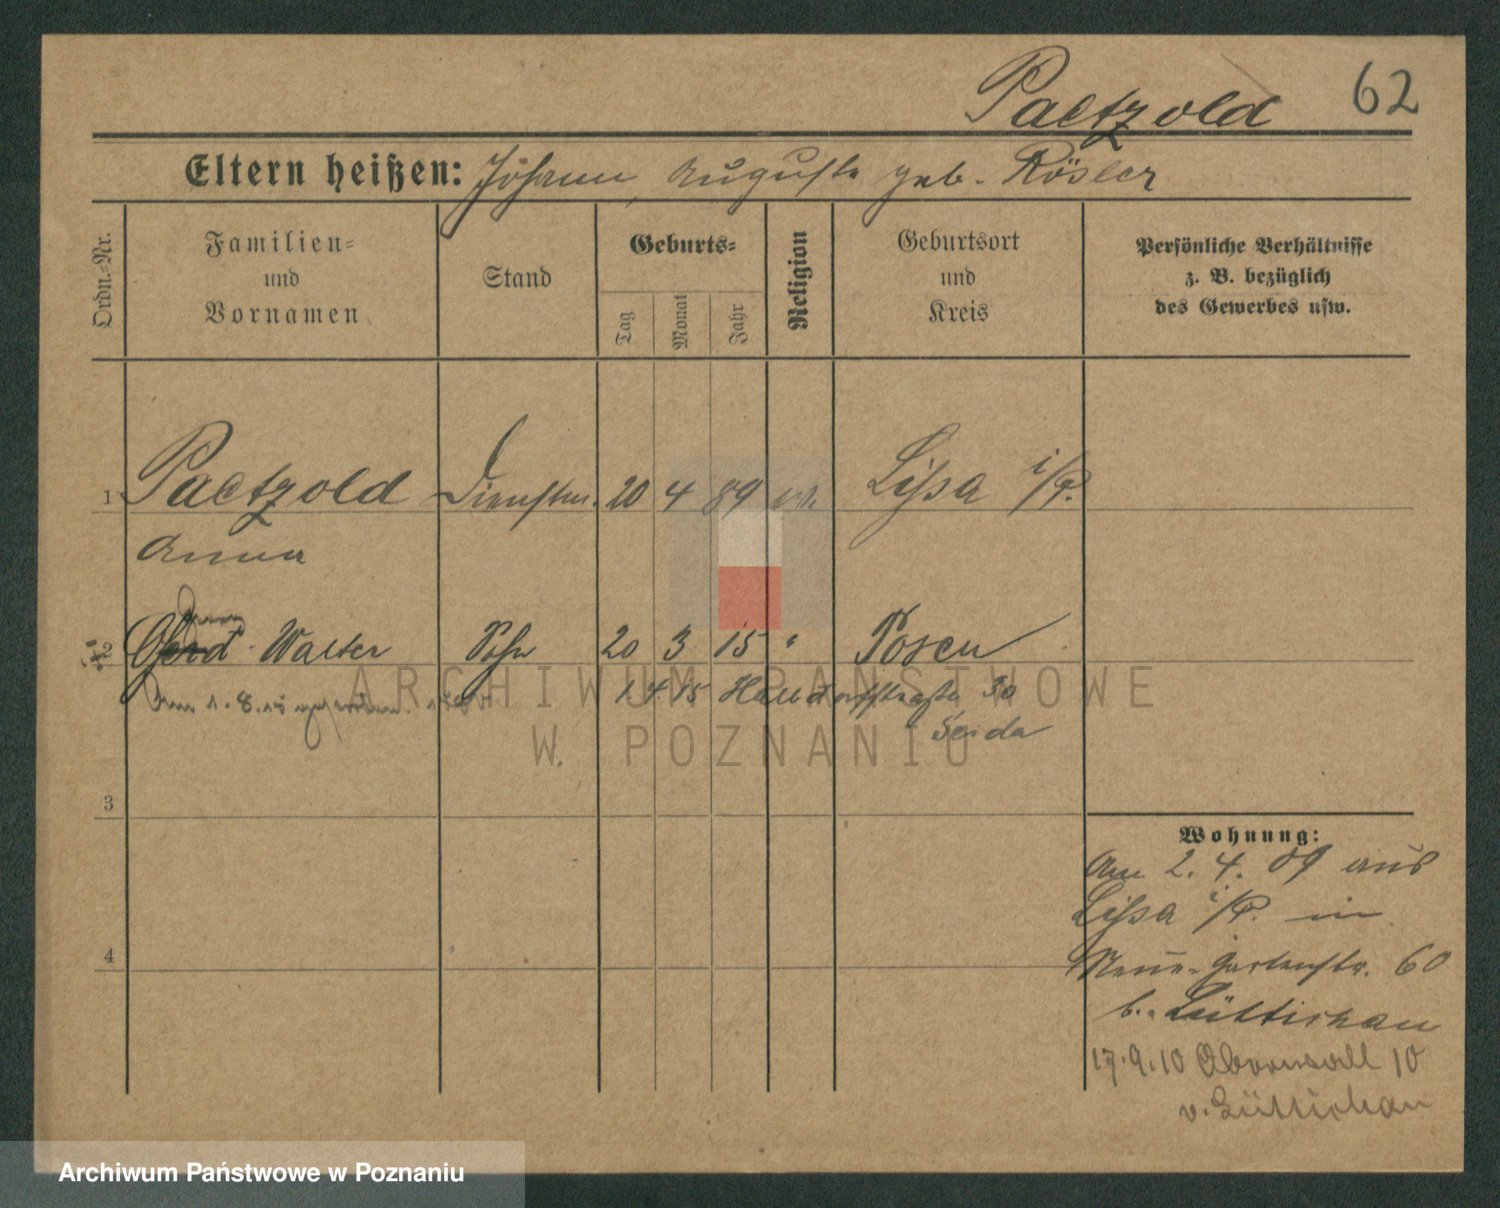 Paetzold 62
Eltern heißen: Johann, Auguste geb. Rösler
Ordn.=Nr.
Familien=
und
Vornamen
Stand
Geburts=
Tag
Monat
Jahr
Religion
Geburtsort
und
Kreis
Persönliche Verhältnisse
z. B. bezüglich
des Gewerbes usw.
1 Paetzold Dienstm. 20 4 89 ev. Lissa i/P.
Anna
2 Gerd Walter Sohn 20 3 15 " Posen
Am 1.8.15 gestorben.
1.4.15 30
ARCHIWUM PAŃSTWOWE
W POZNANIU
3
Wohnung:
Am 2. 4. 09 aus
Lissa i/P. in
4
Neue-Gartenstr. 60
b. Lüttichau
17.9.10 10
v. Lüttichau
Archiwum Państwowe w Poznaniu